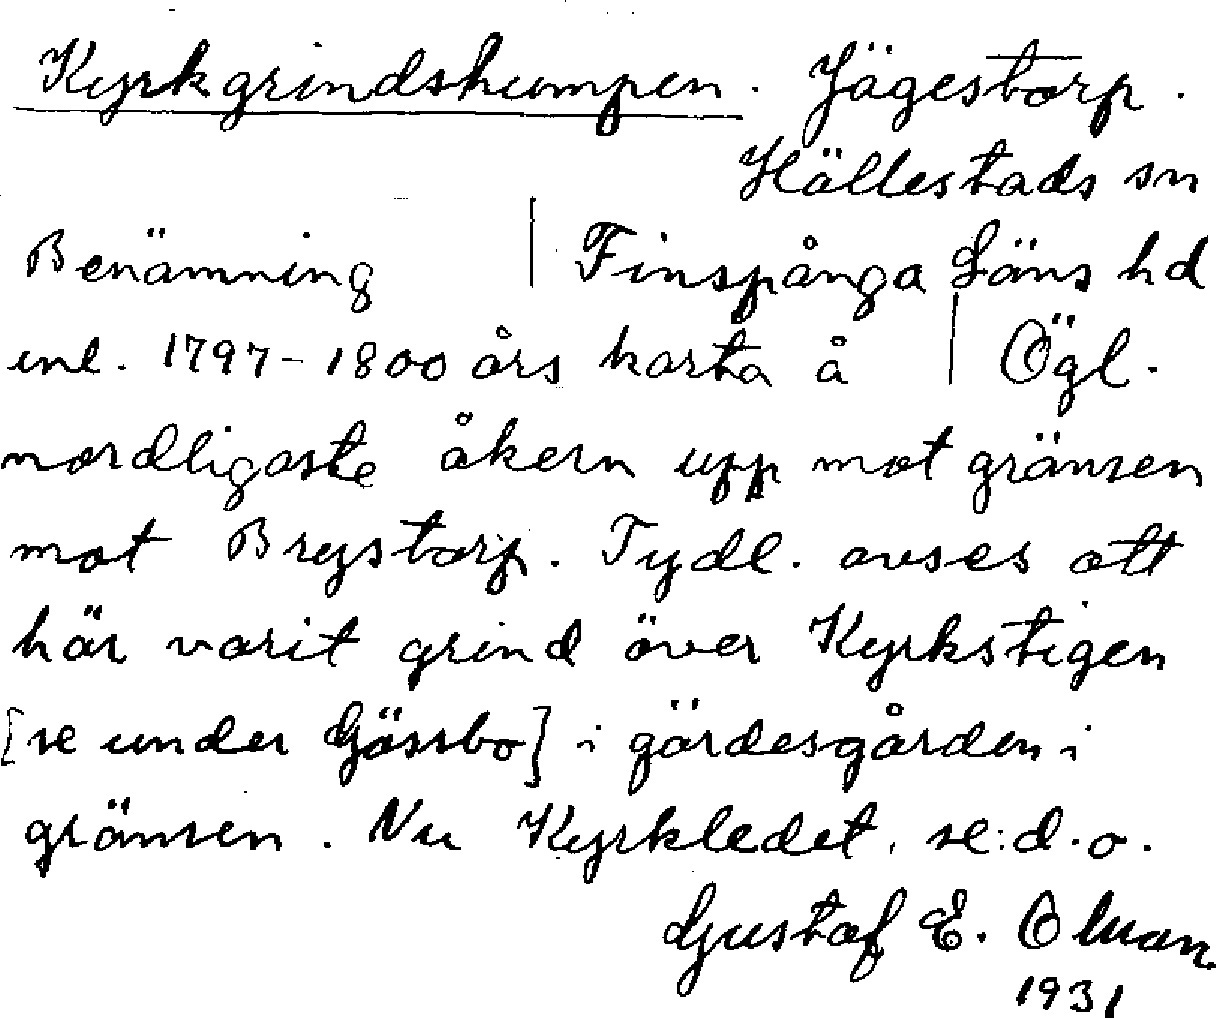 Kyrkgrindshumpen. Jägestorp.
Hällestads sn
Benämning | Finspånga Läns hd
enl. 1797-1800 års karta å | Ögl.
nordligaste åkern upp mot gränsen
mot Brystorp. Tydl. avses att
här varit grind över Kyrkstigen
[se under Gässbo] i gärdesgården i
gränsen. Nu Kyrkledet, se: d.o.
Gustaf E.
1931